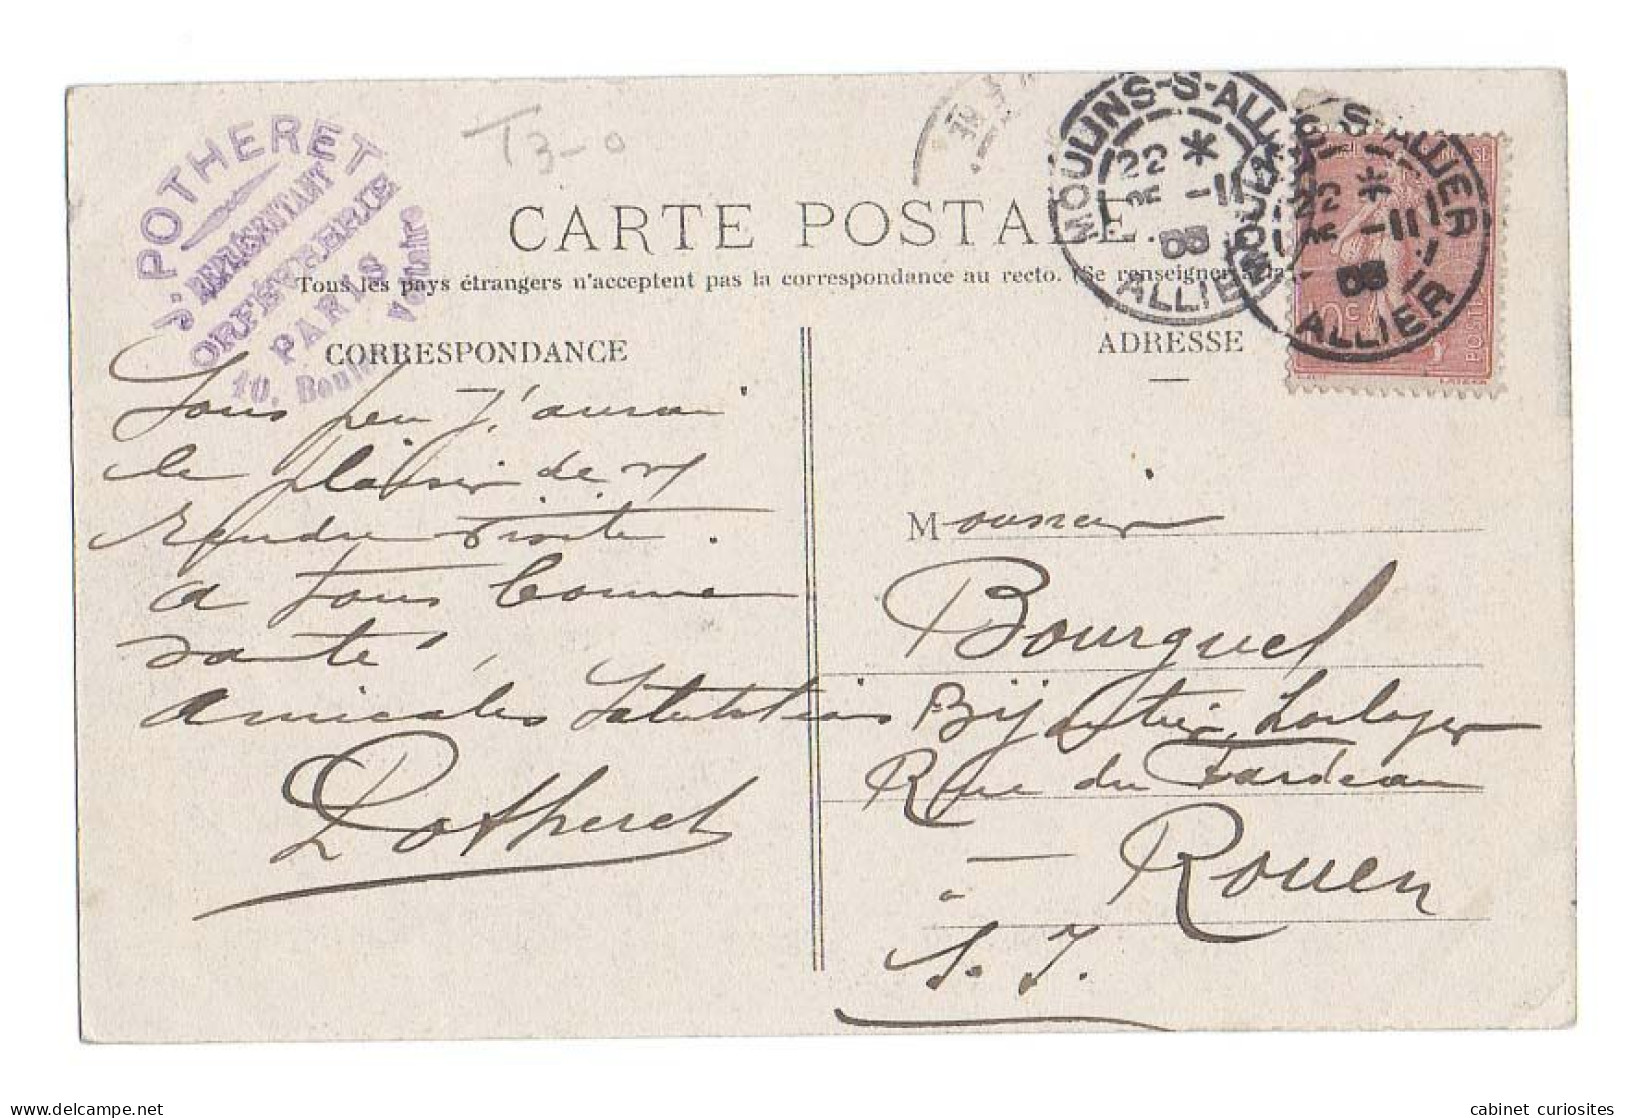 J. POTHERET
REPRÉSENTANT
ORFÈVRERIE
PARIS
10, Boul.d Voltaire
T 3-0
CARTE POSTALE
Tous les pays étrangers n'acceptent pas la correspondance au recto. (Se renseigner à la
CORRESPONDANCE
ADRESSE
MOULINS-S-ALLIER
22 *
3 -11
05
ALLIER
MOULINS-S-ALLIER
22 *
3 -11
05
ALLIER
10c
POSTES
Sous peu j'aurai
le plaisir de vs
rendre visite.
a tous bonne
santé,
amicales salutations
Potheret
Monsieur
Bourguel
Bijoutier, horloger
Rue du Fardeau
à Rouen
S. I.
cabinet curiosites